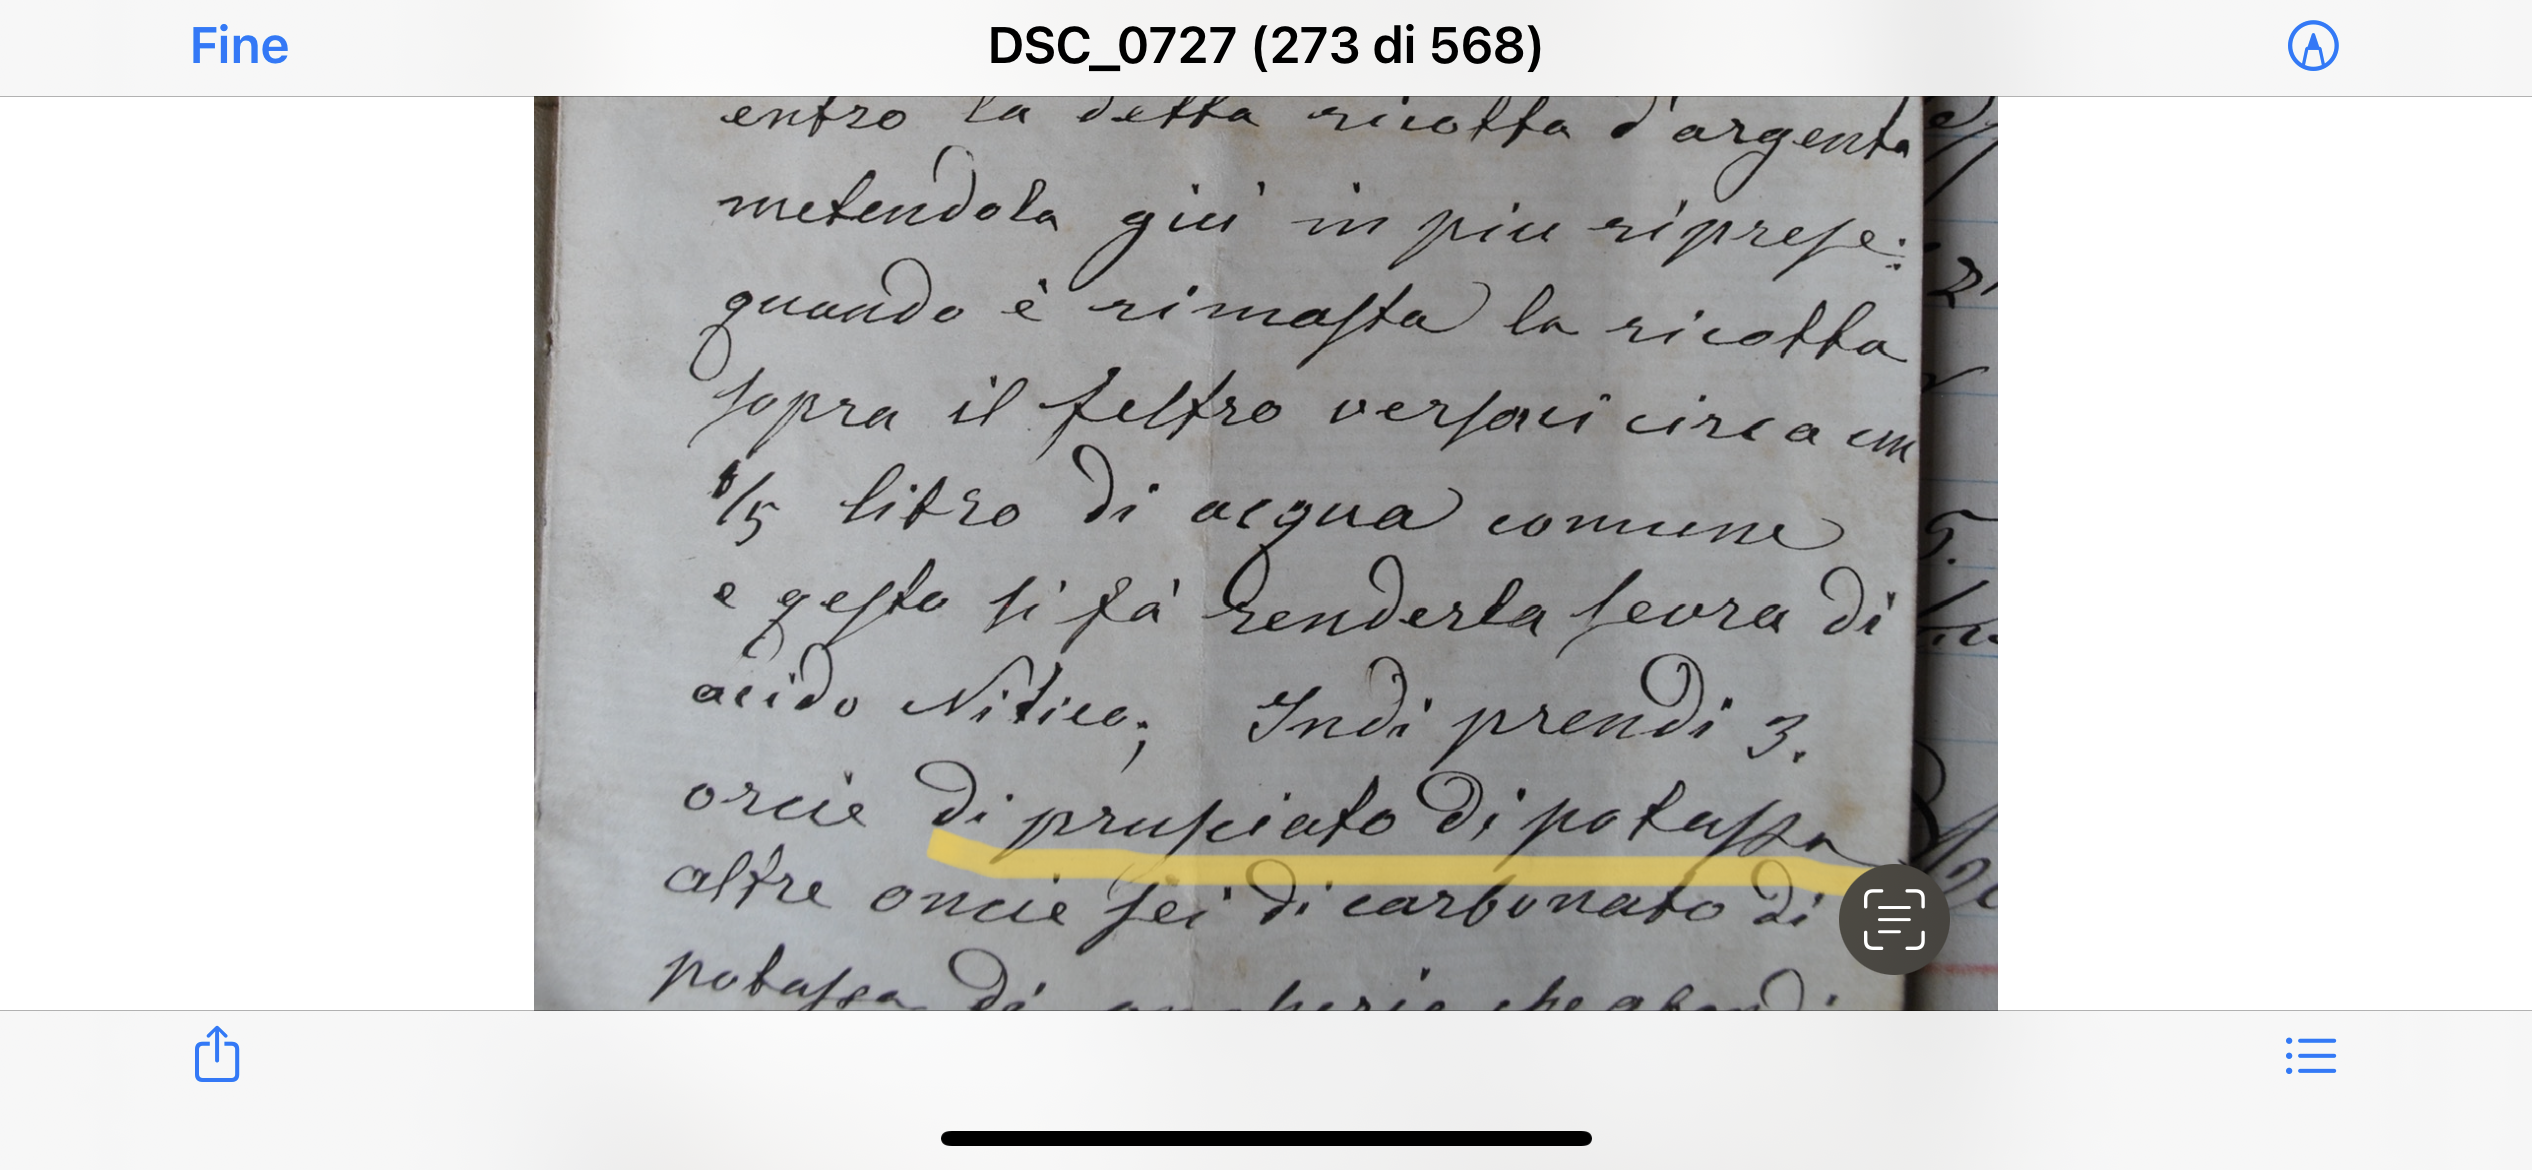 Fine
DSC_0727 (273 di 568)
entro la detta ricotta d'argento
metendola giù in piu riprese:
quando è rimasta la ricotta
sopra il feltro versaci circa un
1/5 litro di acqua comune
e qesto si fà renderla sevra di
acido Nitico; Indi prendi 3.
orcie di prusciato di potassa
altre oncie sei di carbonato di
potassa